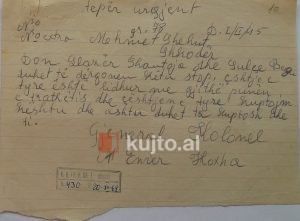 tepër urgjent
No
D. 2/II/45
Nocdra Mehmet Shehut,
Shkodër
Don Lazër Shantoja dhe Sulçe Beg
duhet të dërgonen këtu stop, çështje e
tyre është lidhur me gjithë punën
e trathëtis dhe çeshtjeme tyre kuptojm
keshtu dhe ashtu duhet ta kuptosh dhe
ti.
Gjeneral Kolonel
Enver Hoxha
kujto.ai
430